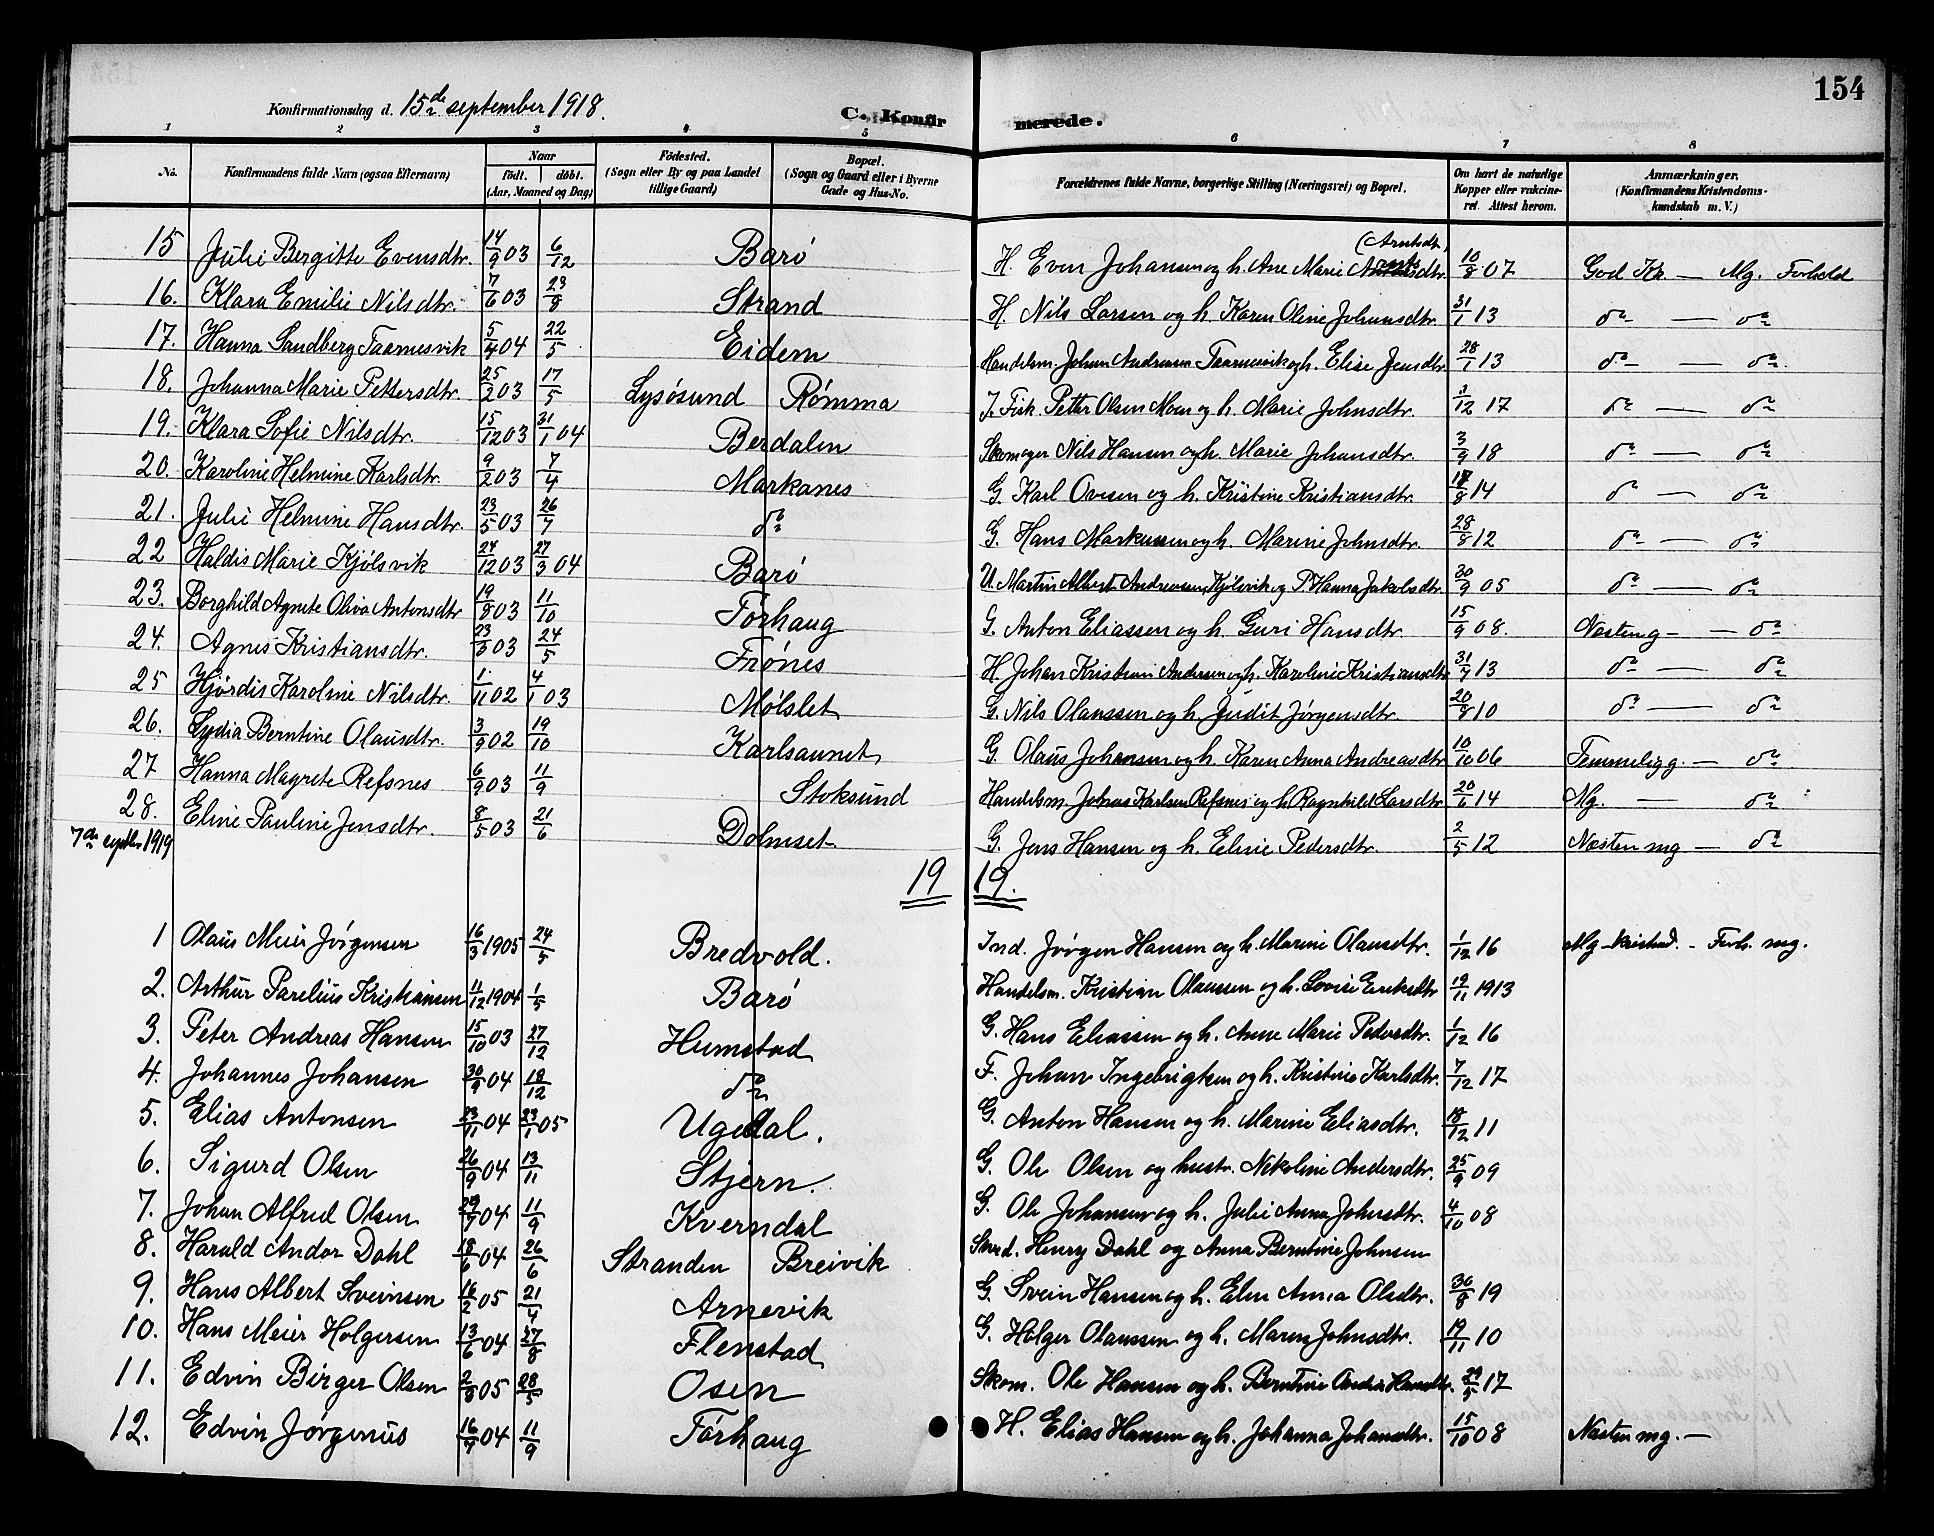 154
Konfirmationsdag d. 15de september 1918.
C. Konfirmerede.
1 2 3 4 5 6 7 8
No. Konfirmandens fulde Navn (ogsaa Efternavn) Naar født. døbt. (Aar, Maaned og Dag) Födested. (Sogn eller By og paa Landet tillige Gaard) Bopæl. (Sogn og Gaard eller i Byerne Gade og Hus-No. Forældrenes fulde Navne, borgerlige Stilling (Næringsvei) og Bopæl. Om havt de naturlige Kopper eller vakcineret. Attest herom. Anmærkninger. (Konfirmandens Kristendomskundskab m. V.)
15 Julie Bergitte Evensdtr. 14/9 03 6/12 Barö H. Even Johansen og h. Ane Marie (Arntsdtr) 10/8 07 God Kr. — Mg. Forhold
16. Klara Emilie Nilsdtr. 7/6 03 23/8 Strand H. Nils Larsen og h. Karen Oline Johansdtr. 31/1 13 do — do
17. Hanna Sandberg Taarnesvik 5/4 04 22/5 Eidem Handelsm. Johan Andreasen Taarnesvik og h. Elise Jensdtr. 28/1 13 do — do
18. Johanna Marie Pettersdtr. 25/2 03 17/5 Lysösund Römma J. Fisk. Petter Olsen Moen og h. Marie Johnsdtr. 3/12 17 do — do
19. Klara Sofie Nilsdtr. 15/12 03 31/1 04 Berdalen Skomager Nils Hansen og h. Marie Johansdtr. 3/9 18 do — do
20. Karoline Helmine Karlsdtr. 9/2 03 7/4 Markanes G. Karl Ovesen og h. Kristine Kristiansdtr. 8 14 do — do
21. Julie Helmine Hansdtr. 23/5 03 26/7 do G. Hans Markussen og h. Marine Johnsdtr. 28/8 12 do — do
22 Haldis Marie Kjölsvik 24/12 03 27/3 04 Barö U. Martin Albert Andreasen Kjölsvik og P. Hanna Jakobsdtr. 30/9 05 do — do
23. Borghild Agnete Oliva Antonsdtr 19/8 03 11/10 Törhaug G. Anton Eliassen og h. Guri Hansdtr. 15/9 08. Nesten g — — do
24. Agnes Kristiansdtr. 23/3 03 24/5 Frönes H. Johan Kristian Andersen og h. Karoline Kristiansdtr 31/7 13 do — do
25 Hjördis Karoline Nilsdtr. 1/11 02 4/1 03 Mölslet G. Nils Olaussen og h. Judit Jörgensdtr. 20/8 10 do — do
26. Lydia Berntine Olausdtr. 3/9 02 19/10 Karlsaunet G. Olaus Johansen og h. Karen Anna Andreasdtr 10/10 06 Temmelig g. — do
27 Hanna Magrete Refsnes 6/9 03 11/9 Stoksund Handelsm. Johns Karlsen Refsnes og h. Ragnhild Larsdtr 20/6 14 Mg. — do
28. Eline Pauline Jensdtr. 8/5 03 21/6 Dolmset G. Jens Hansen og h. Eline Pedersdtr. 2/5 12 Næsten mg — do
7de septbr 1919
19 19.
1 Olaus Meier Jörgensen 16/3 1905 24/5 Bredvold. Ind. Jörgen Hansen og h. Marine Olausdtr. 1/12 16 Mg kristend. - Forh. mg.
2. Arthur Parelius Kristiansen 11/12 1904 1/5 Barö Handelsm. Kristian Olaussen og h. Lovise Eriksdtr 19/11 1913
3. Peter Andreas Hansen 15/10 03 27/12 Humstad G. Hans Eliassen og h. Anne Marie Pedersdtr. 1/12 16
4. Johannes Johansen 30/9 04 18/12 do F. Johan Ingebrigtsen og h. Kristine Karlsdtr. 7/12 17
5. Elias Antonsen 23/11 04 23/1 05 Ugedal. G. Anton Hansen og h. Marine Eliasdtr. 18/12 11
6. Sigurd Olsen 26/9 04 13/11 Stjern. G. Ole Olsen og hustr. Nikoline Andersdtr. 25/9 09
7. Johan Alfred Olsen 29/7 04 11/9 Kverndal G. Ole Johansen og h. Julie Anna Johnsdtr. 4/10 08
8. Harald Andor Dahl 18/6 04 26/6 Stranden Breivik Smed. Henry Dahl og Anna Berntine Johnsen
9. Hans Albert Sveinsen 16/2 05 21/4 Arnevik G. Svein Hansen og h. Elen Anna Olsdtr. 30/8 19
10. Hans Meier Holgersen 13/6 04 27/8 Flenstad G. Holger Olaussen og h. Maren Johnsdtr. 19/11 10
11. Edvin Birger Olsen 2/3 05 28/5 Osen Skom. Ole Hansen og h. Berntine Andrea Hansdtr. 29/5 17
12. Edvin Jörginus 16/7 04 11/9 Törhaug H. Elias Hansen og h. Johanna Johansdtr. 15/10 08 Næsten mg. —